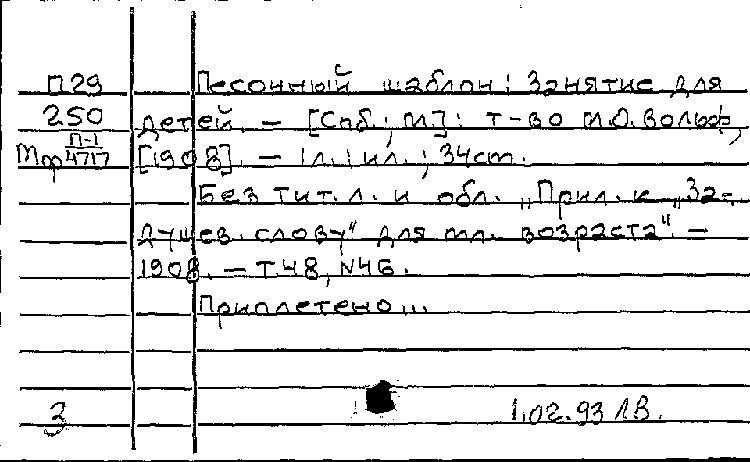 П29 Песочный шаблон: Занятие для
250 детей. – [Спб.; М.]: т-во М.О. Вольф,
Мф П-1/4717 [1908]. – 1 л.: ил.; 34 ст.
Без тит. л. и обл. „Прил. к „За-
душев. слову" для мл. возраста". –
1908. – Т.48, N46.
Приплетено...
3 1.02.93 ЛВ.